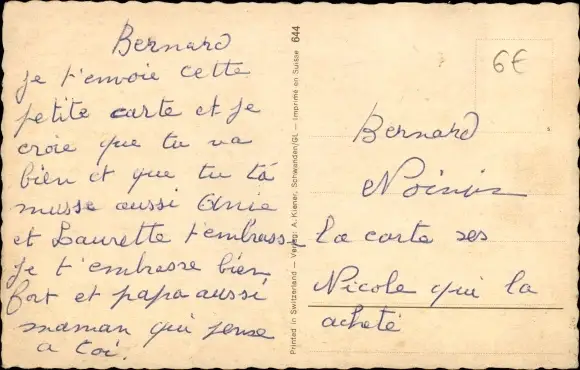 Bernard
je t'envoie cette
petite carte et je
croie que tu va
bien et que tu tá
musse aussi Anie
et Laurette t'embrass
je t'embrasse bien
fort et papa aussi
maman qui pense
a toi.
Printed in Switzerland — Verlag: A. Kiener, Schwanden/GL — Imprimé en Suisse 644
6€
Bernard
la carte ses
Nicole qui la
acheté